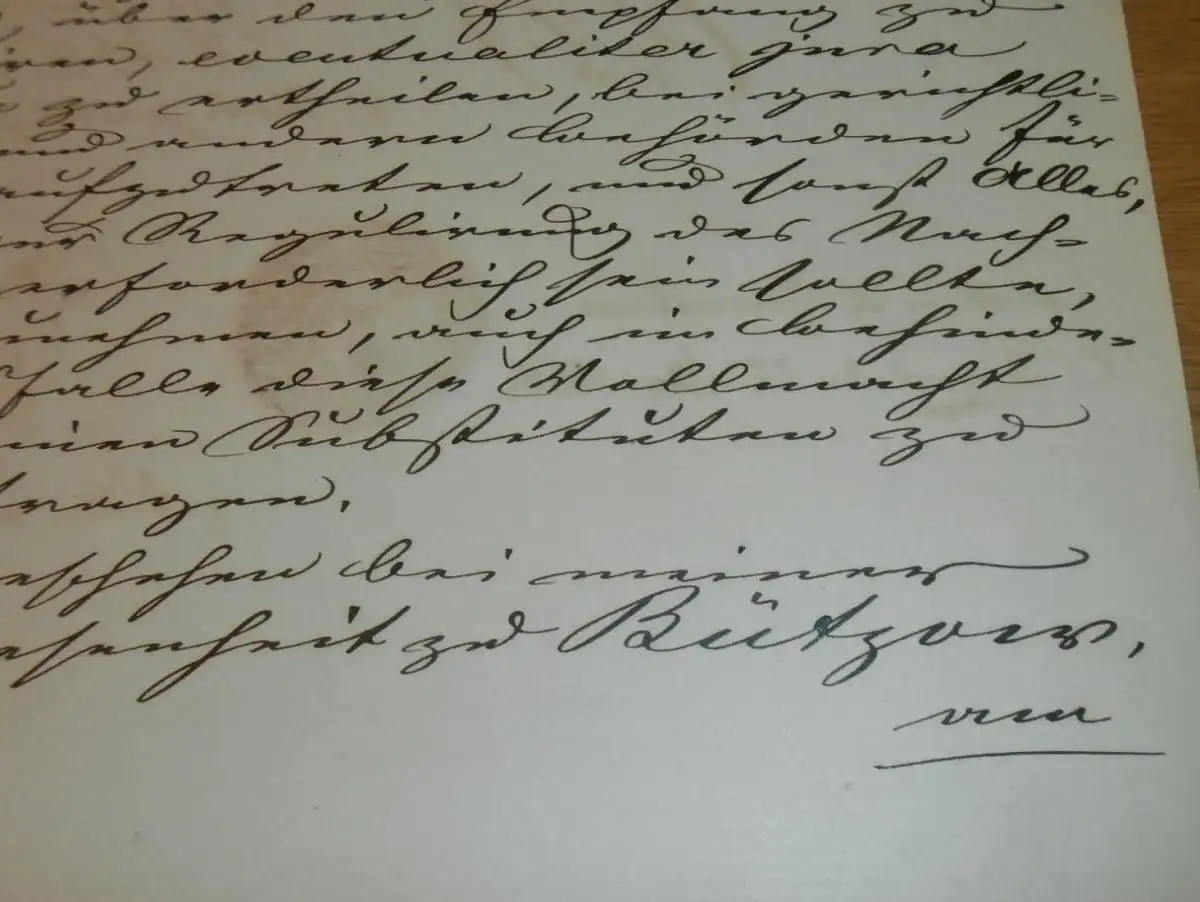 , über den Empfang zu
iren, eventualiter jura
zu ertheilen, bei gerichtli-
und andern Behörden für
aufzutreten, und sonst Alles,
zur Regulirung des Nach-
erforderlich sein sollte,
unehmen, auch im Behinde-
falle diese Vollmacht
inen Substituten zu
tragen.
eschehen bei meiner
esenheit zu Bützow,
am